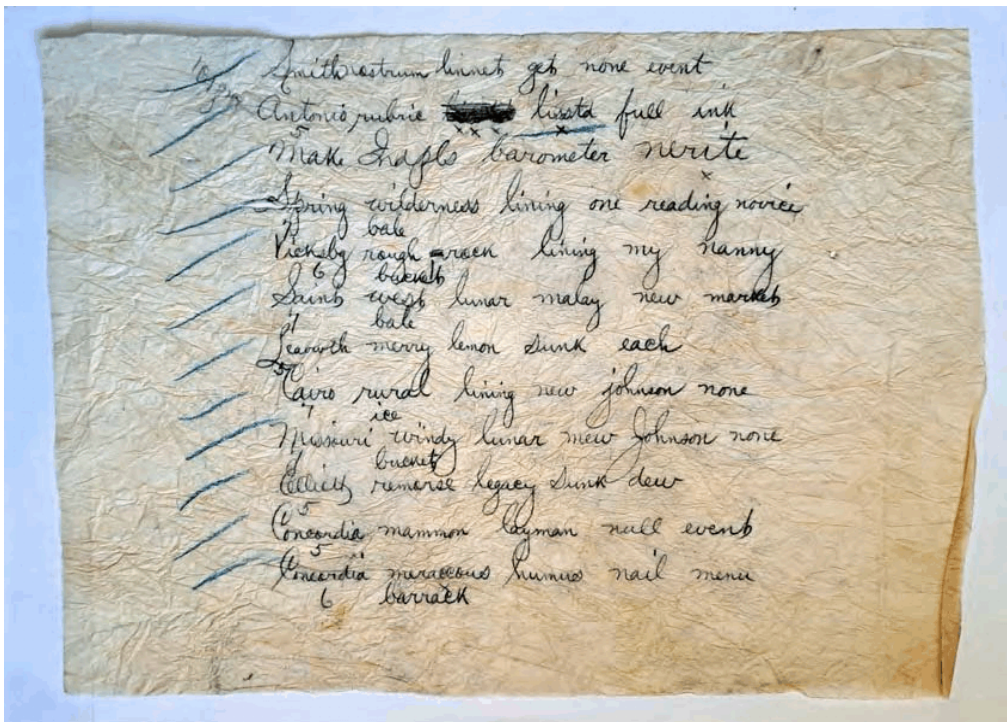 Smith rostrum linnet get none event
Antonio rubric lissta full ink
5
Make Indpls barometer nerite
Spring wilderness lining one reading novice
7 bale
Vicksbg rough rock lining my nanny
6 bucket
Saint west lunar malay new market
7 bale
Leavwth merry lemon sunk each
5
Cairo rural lining new johnson none
7 ice
Missouri windy lunar mew Johnson none
bucket
Elliott remorse legacy sunk dew
5
Concordia mammon layman null event
5
Concordia meraccous humus nail menu
6 barrack